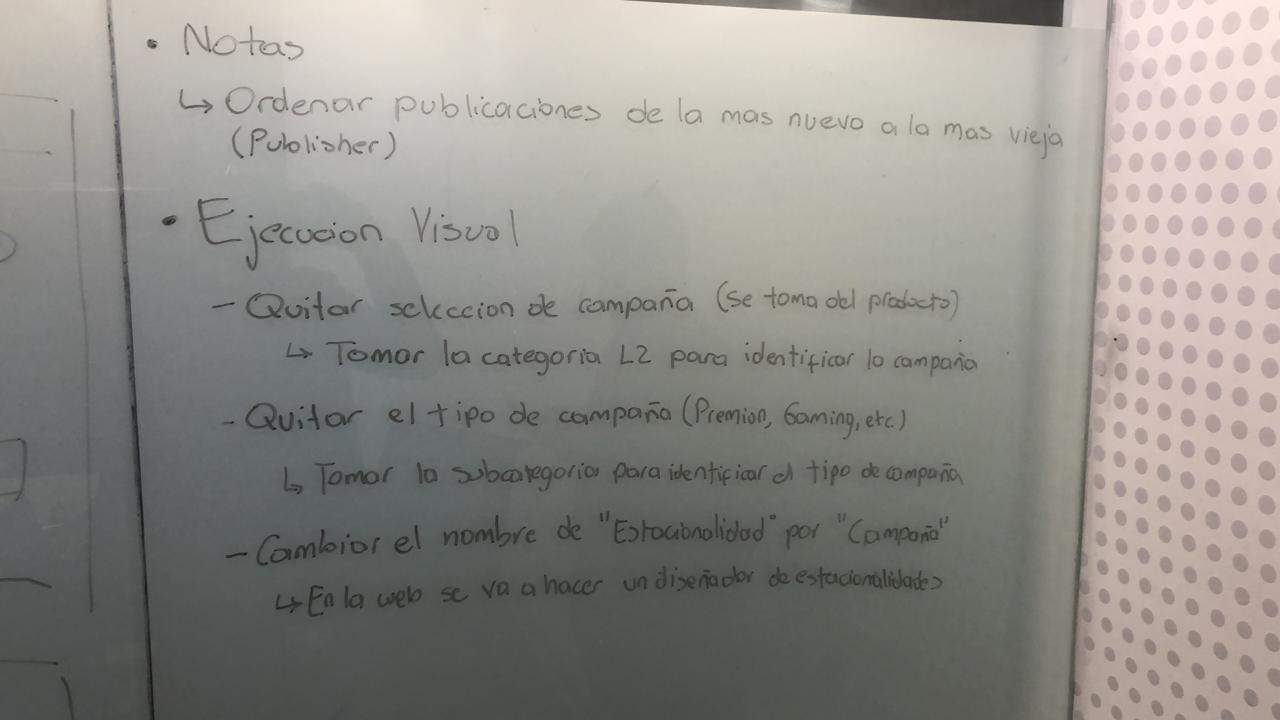 • Notas
↳ Ordenar publicaciones de la mas nuevo a la mas vieja
(Publisher)
• Ejecucion Visual
- Quitar seleccion de campaña (se toma del producto)
↳ Tomar la categoria L2 para identificar la campaña
- Quitar el tipo de campaña (Premion, Gaming, etc)
↳ Tomar la subcategoria para identificiar el tipo de campaña
- Cambiar el nombre de "Estacionalidad" por "Campaña"
↳ En la web se va a hacer un diseñador de estacionalidades